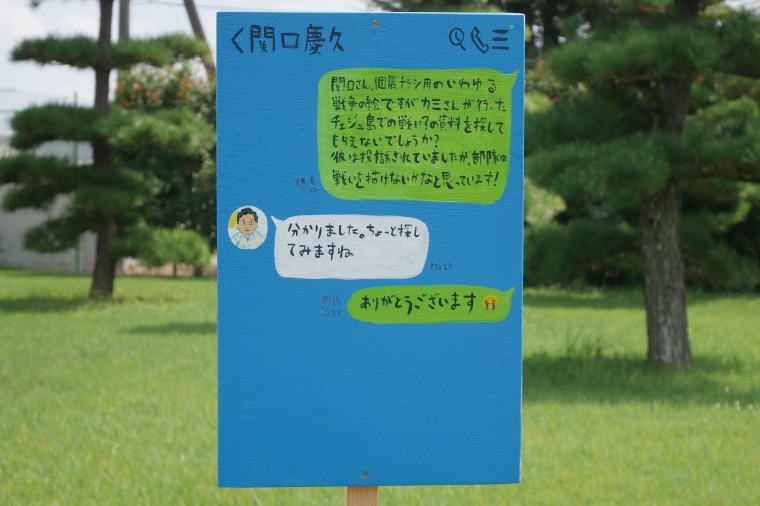 く関口慶久
関口さん、個展チラシ用のいわゆる
戦争の絵ですがカミさんが行った
チェジュ島での戦い?の資料を探して
もらえないでしょうか?
彼は投獄されていましたが、部隊の
戦いを描けないかなと思っています!
分かりました。ちょっと探し
てみますね
17:27
ありがとうございます😭